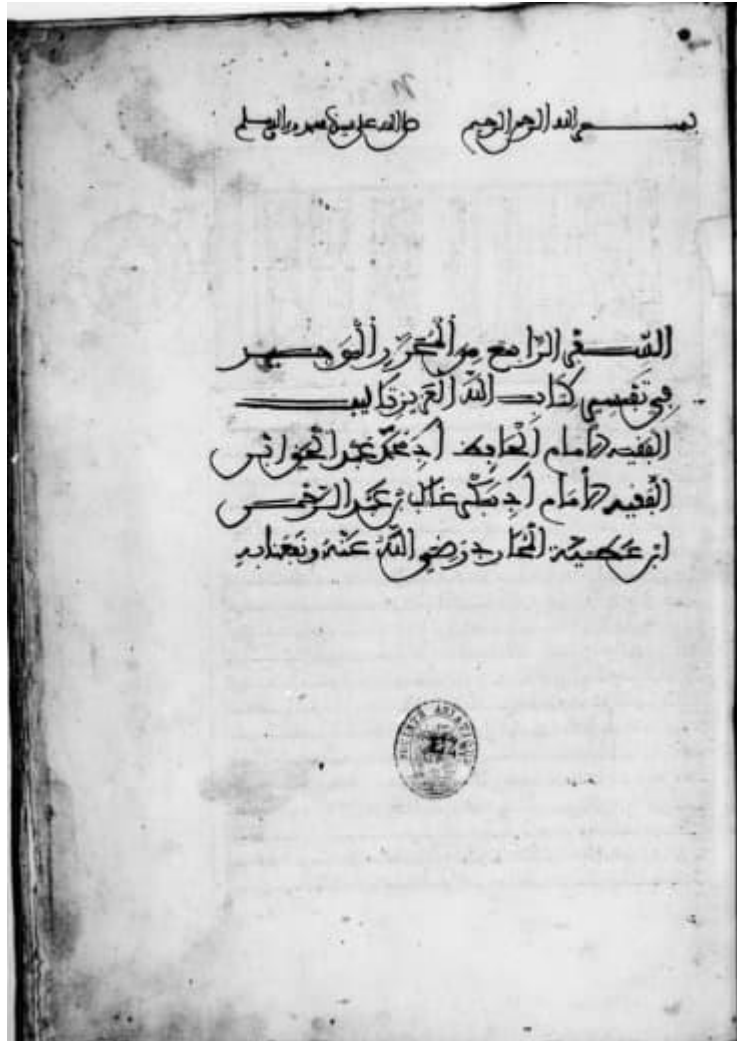 بسم الله الرحمن الرحيم صلى الله على سيدنا محمد وآله وسلم
السفر الرابع من المحرر الوجيز
في تفسير كتاب الله العزيز تاليف
الفقيه الامام الحافظ ابي محمد عبد الحق ابن
الفقيه الامام ابي بكر غالب بن عبد الرحمن
ابن عطية المحاربي رضي الله عنه ونفعنا به